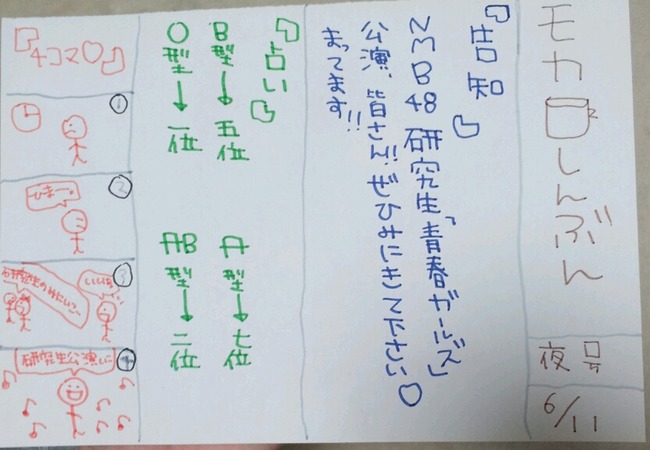 モカしんぶん
夜号
6/11
『告知』
NMB48 研究生「青春ガールズ」
公演、皆さん!!ぜひみにきて下さい♡
まってます!!
『占い』
B型→五位
A型→七位
O型→一位
AB型→二位
『4コマ♡』
①
②
ひまー。
③
いいな
研究生のみにいこー
④
研究生公演に